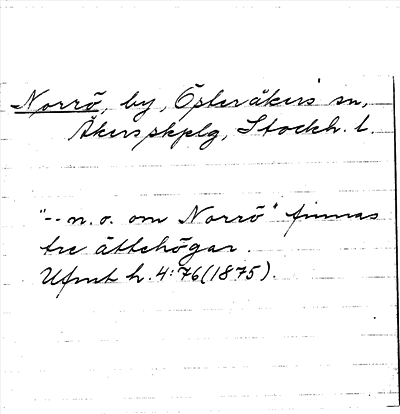 Norrö, by, Österåkers sn,
Åkers skplg, Stockh. l.
"-- n. o. om Norrö" finnas
tre ättehögar.
Ufmt h. 4:76 (1875).